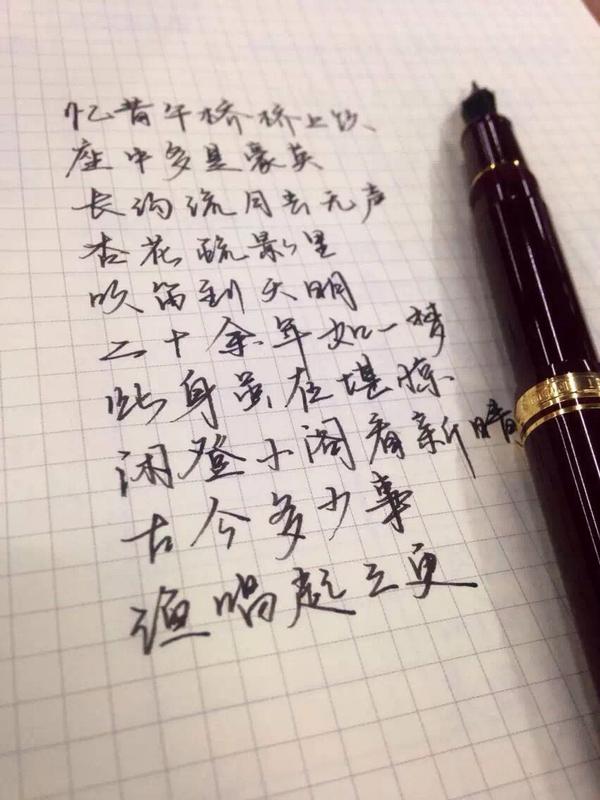 忆昔午桥桥上饮、
座中多是豪英
长沟流月去无声
杏花疏影里
吹笛到天明
二十余年如一梦
此身虽在堪惊
闲登小阁看新晴
古今多少事
渔唱起三更